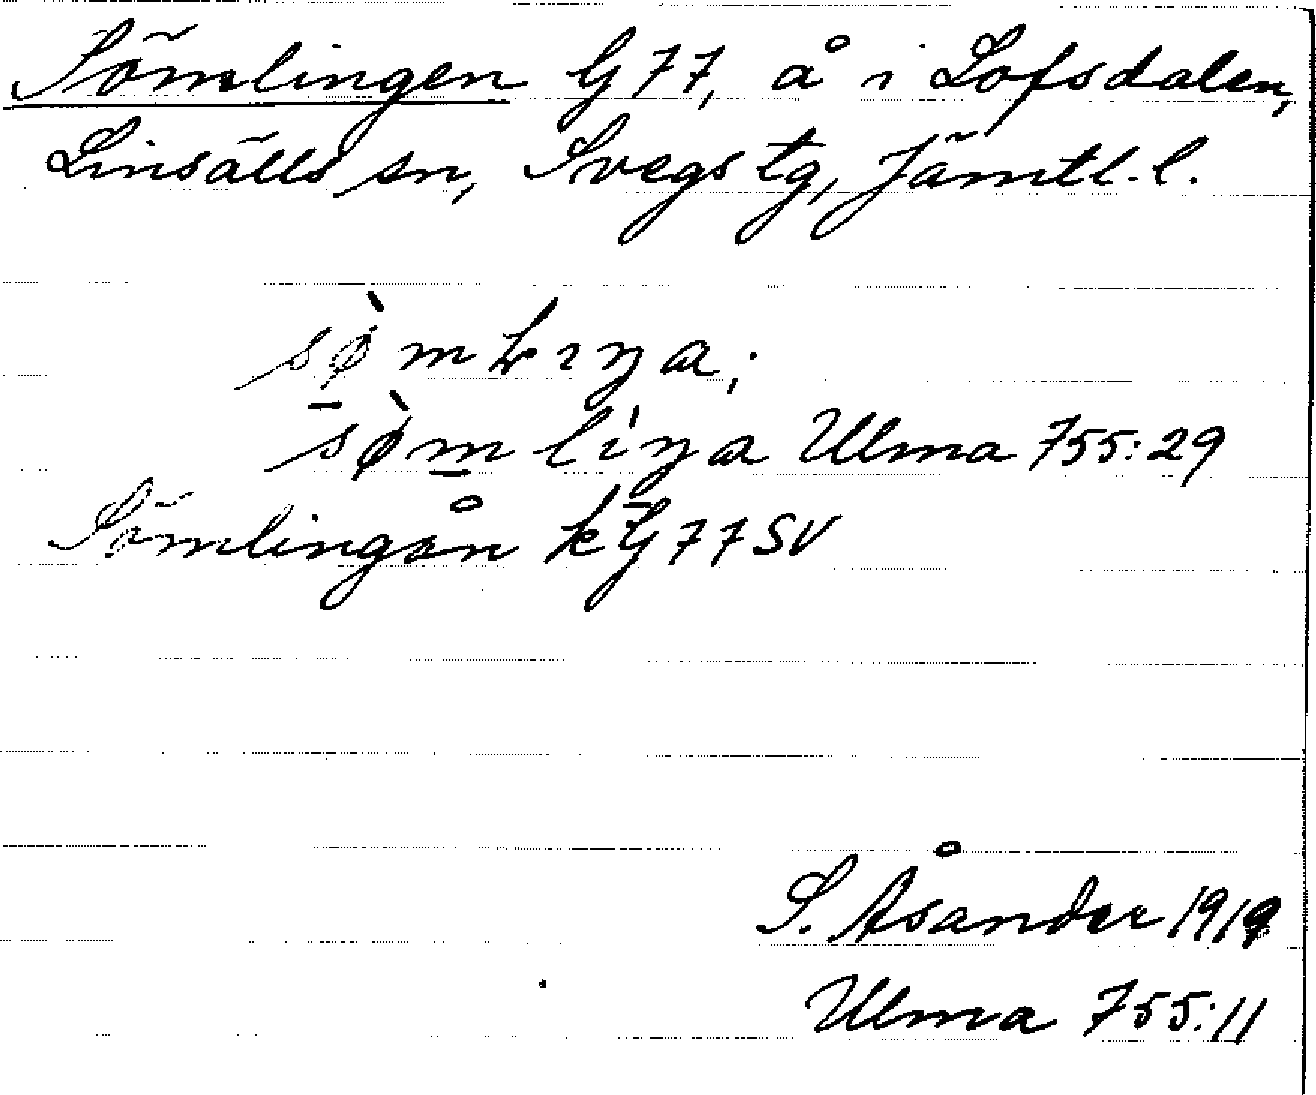 Sömlingen G77, å i Lofsdalen,
Linsälls sn, Svegs tg, Jämtl. l.
sø̀mlıŋa;
sø̀mliŋa Ulma 755:29
Sömlingån kG77SV
S. Åsander 1919
Ulma 755:11